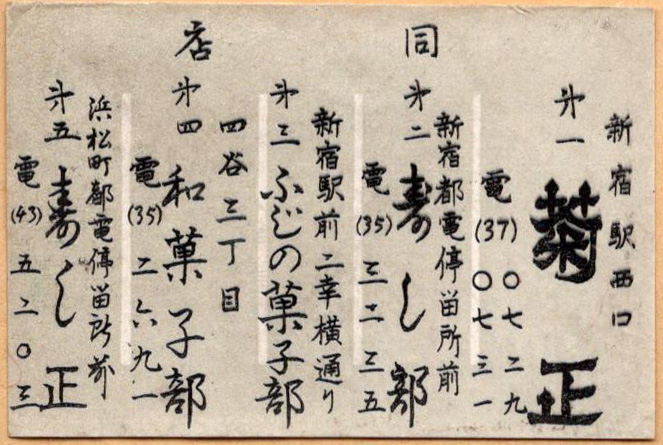 新宿駅西口
㐧一 菊正
電(37)〇七二九
〇七三一
同店
新宿都電停留所前
㐧二 寿し部
電(35)三二三五
新宿駅前二幸横通り
㐧三 ふじの菓子部
四谷三丁目
㐧四 和菓子部
電(35)二六九一
浜松町都電停留所前
㐧五 寿し正
電(43)五二〇三